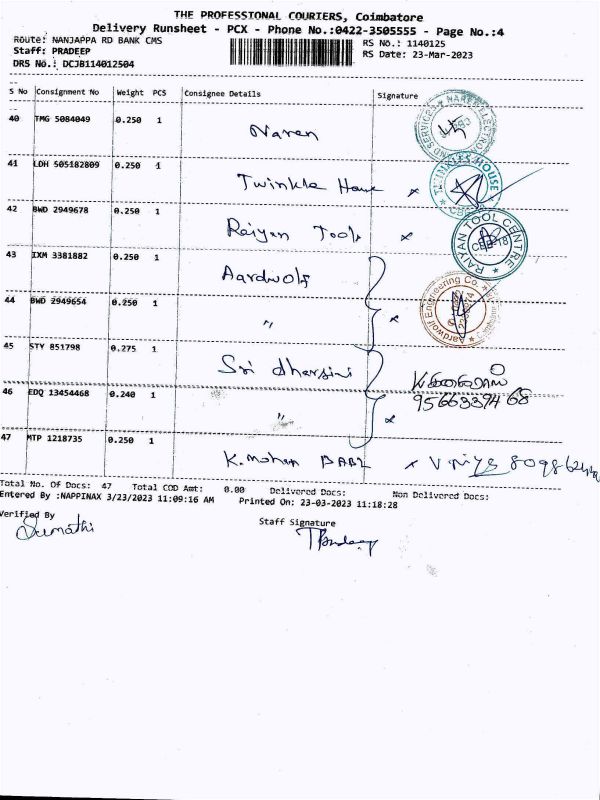 THE PROFESSIONAL COURIERS, Coimbatore
Delivery Runsheet - PCX - Phone No.:0422-3505555 - Page No.:4
Route: NANJAPPA RD BANK CMS
RS No.: 1140125
Staff: PRADEEP
RS Date: 23-Mar-2023
DRS No.: DCJB114012504
S No Consignment No Weight PCS Consignee Details Signature
40 TMG 5084049 0.250 1 Naren
41 LDH 505182809 0.250 1 Twinkle House x
TWINKLES HOUSE
42 BWD 2949678 0.250 1 Raiyan Tools x
RAIYAN TOOL CENTRE
CBE-18
43 IXM 3381882 0.250 1 Aardwolf
Aardwolf Engineering Co.
44 BWD 2949654 0.250 1 " x
45 STY 851798 0.275 1 Sri dharsini
46 EDQ 13454468 0.240 1 " x
47 MTP 1218735 0.250 1 K.mohan BABU x
Total No. Of Docs: 47 Total COD Amt: 0.00 Delivered Docs: Non Delivered Docs:
Entered By :NAPPINAX 3/23/2023 11:09:16 AM Printed On: 23-03-2023 11:18:28
Verified By
Staff Signature
Sumathi